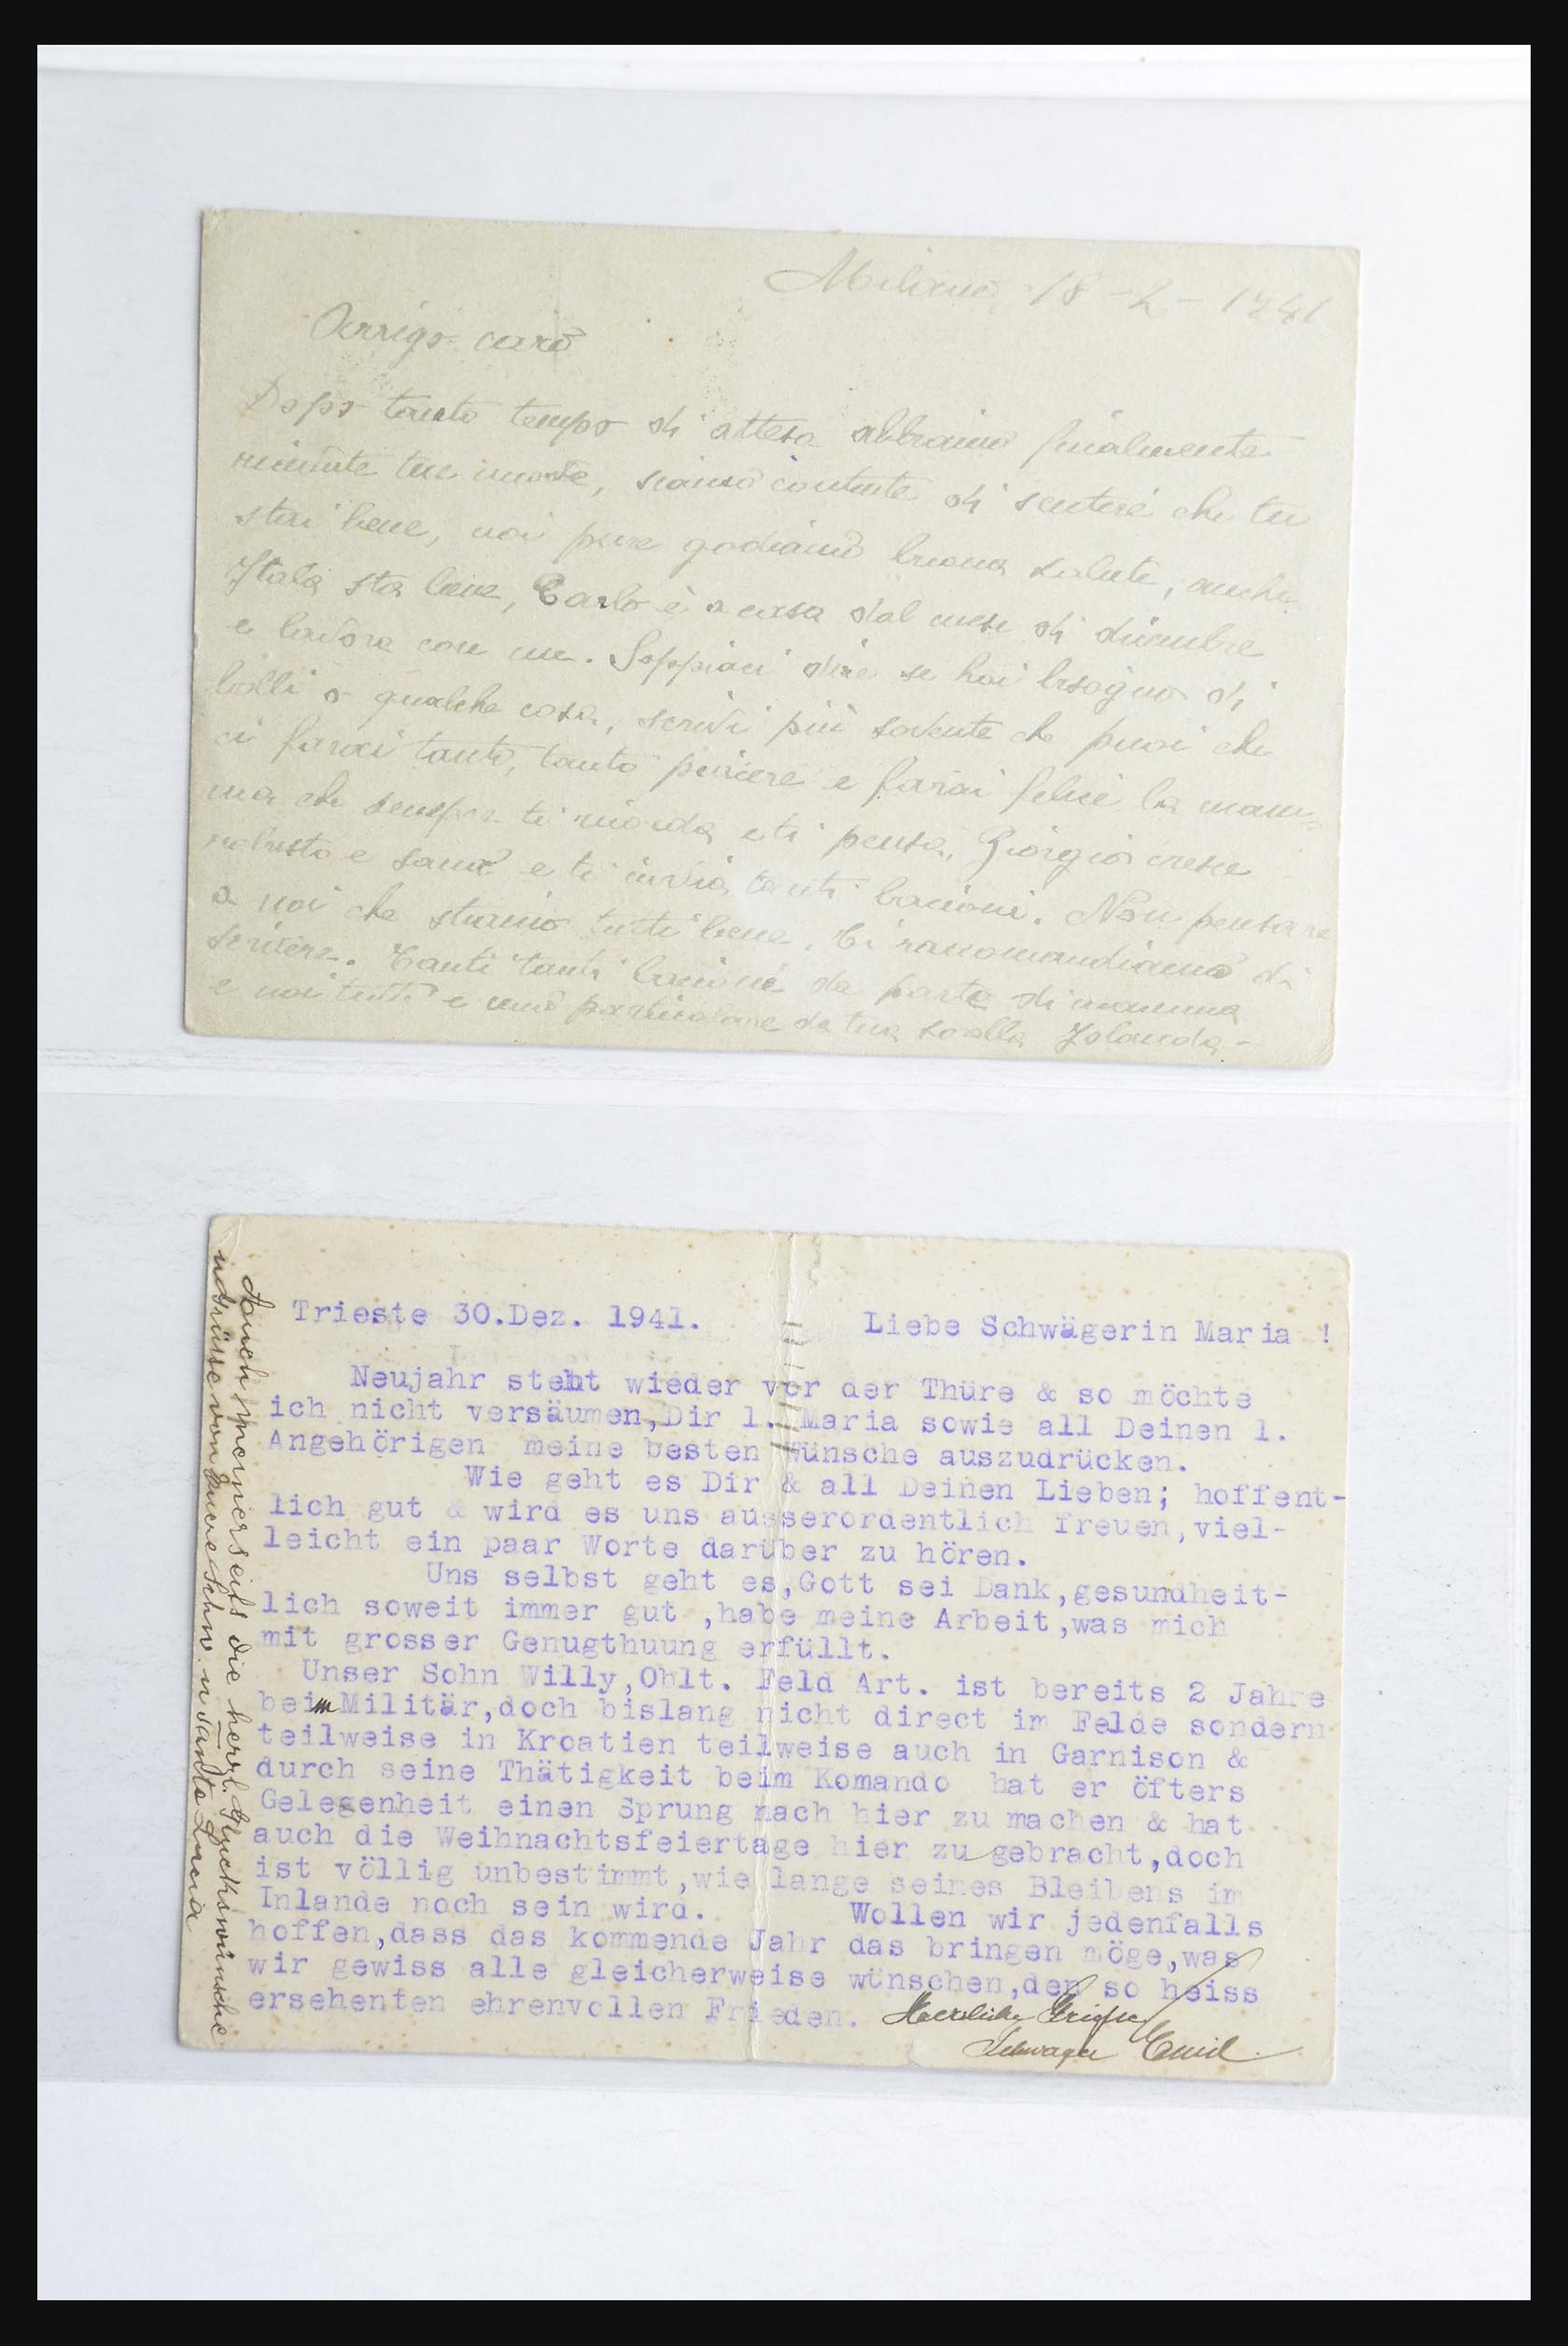 Milano 18-2-1941
Arrigo caro
Dopo tanto tempo di attesa abbiamo finalmente
ricevute tue nuove, siamo contente di sentire che tu
stai bene, noi pure godiamo buona salute, anche
Itala sta bene, Carlo è a casa dal mese di dicembre
e lavora con me. Sappiaci dire se hai bisogno di
bolli o qualche cosa, scrivi più sovente che puoi che
ci farai tanto, tanto piacere e farai felice la mam=
ma che sempre ti ricorda e ti pensa, Giorgio cresce
robusto e sano e ti invia tanti bacioni. Non pensare
a noi che stiamo tutti bene. Ti raccomandiamo di
scrivere. Tanti tanti bacioni da parte di mamma
e noi tutti e uno particolare da tua sorella Jolanda-
Trieste 30.Dez. 1941. Liebe Schwägerin Maria !
Neujahr steht wieder vor der Thüre & so möchte
ich nicht versäumen,Dir l. Maria sowie all Deinen l.
Angehörigen meine besten Wünsche auszudrücken.
Wie geht es Dir & all Deinen Lieben; hoffent-
lich gut & wird es uns ausserordentlich freuen,viel-
leicht ein paar Worte darüber zu hören.
Uns selbst geht es,Gott sei Dank,gesundheit-
lich soweit immer gut ,habe meine Arbeit,was mich
mit grosser Genugthuung erfüllt.
Unser Sohn Willy,Oblt. Feld Art. ist bereits 2 Jahre
beim Militär,doch bislang nicht direct im Felde sondern
teilweise in Kroatien teilweise auch in Garnison &
durch seine Thätigkeit beim Komando hat er öfters
Gelegenheit einen Sprung nach hier zu machen & hat
auch die Weihnachtsfeiertage hier zu gebracht,doch
ist völlig unbestimmt,wie lange seines Bleibens im
Inlande noch sein wird. Wollen wir jedenfalls
hoffen,dass das kommende Jahr das bringen möge,was
wir gewiss alle gleicherweise wünschen,den so heiss
ersehenten ehrenvollen Frieden. Herzliche Grüsse
Schwager Emil
Auch meinerseits die herzl. Glückswünsche
u Grüsse von Eurer Schw. u Tante Lucia